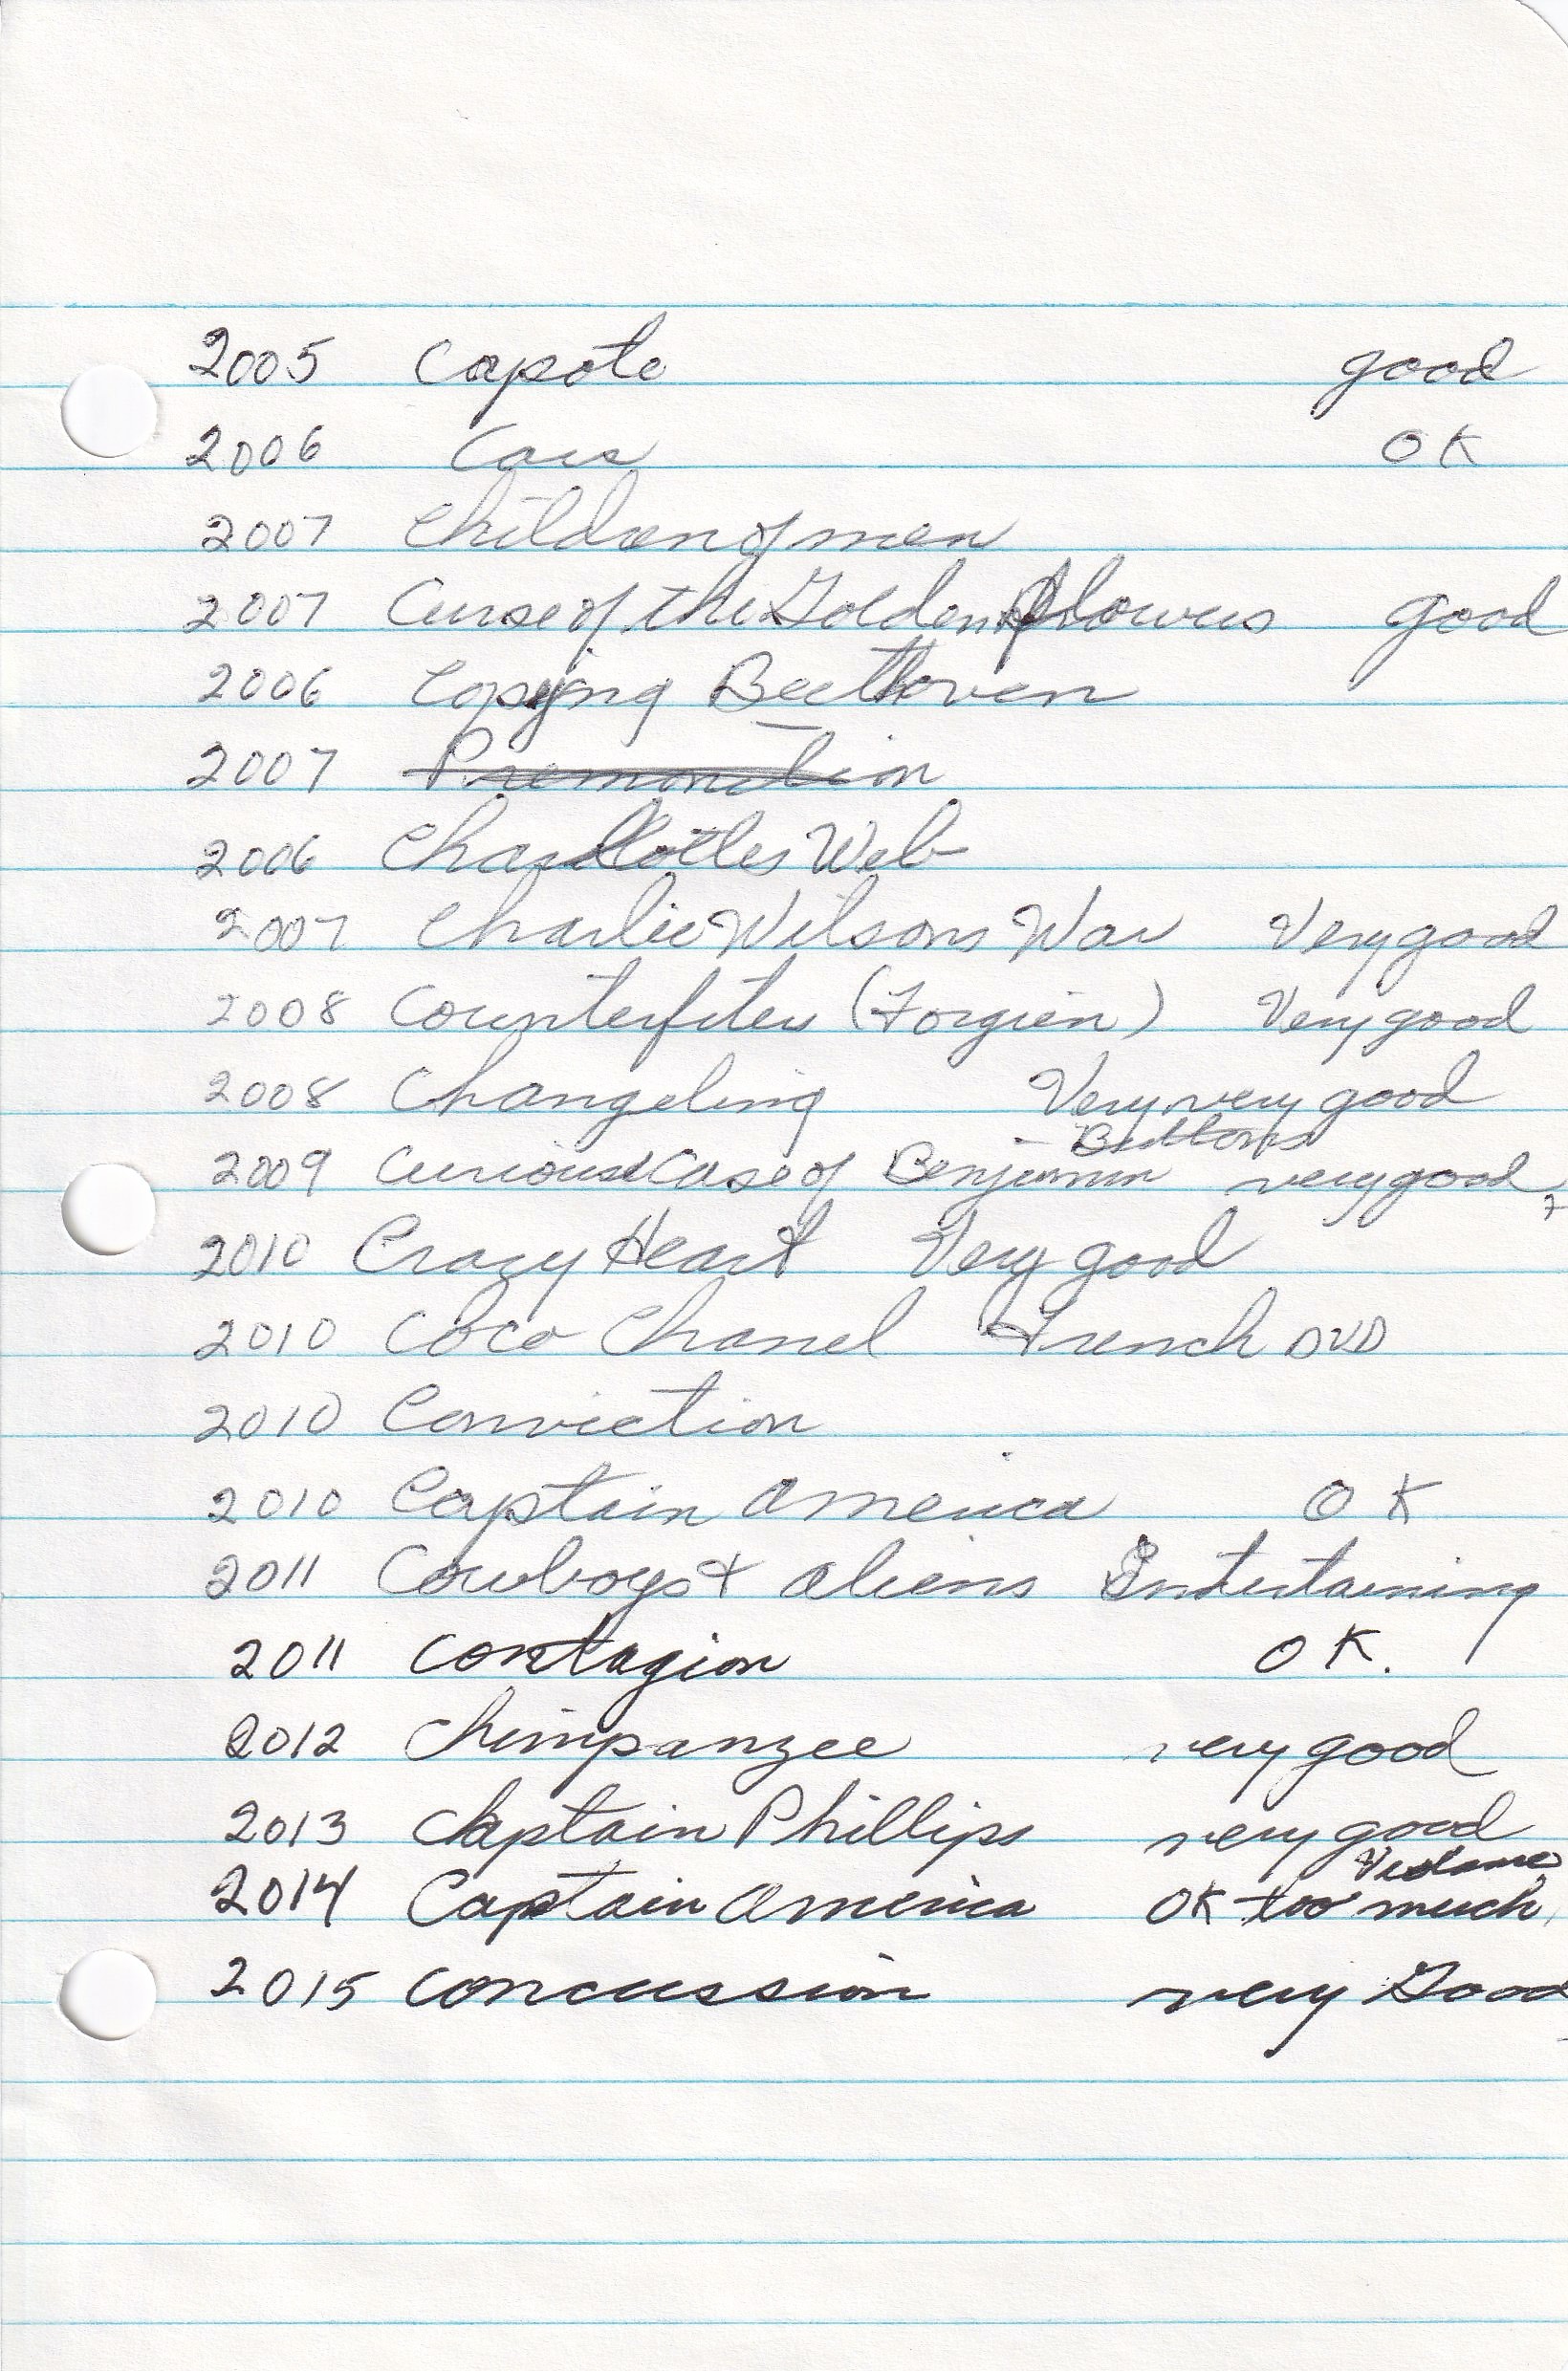 2005 Capote good
2006 Cars OK
2007 Children of men
2007 Curse of the Golden Flowers good
2006 Copying Beethoven
2007 Premonition
2006 Charlottes Web
2007 Charlie Wilsons War Very good
2008 Counterfiters (Forgien) Very good
2008 Changeling Very very good
Buttons
2009 Curious Case of Benjamin very good +
2010 Crazy Heart Very good
2010 Coco Chanel French DVD
2010 Conviction
2010 Captain America OK
2011 Cowboys & Aliens Entertaining
2011 Contagion OK.
2012 Chimpanzee very good
2013 Captain Phillips very good
Violance
2014 Captain America OK too much
2015 Concussion very Good